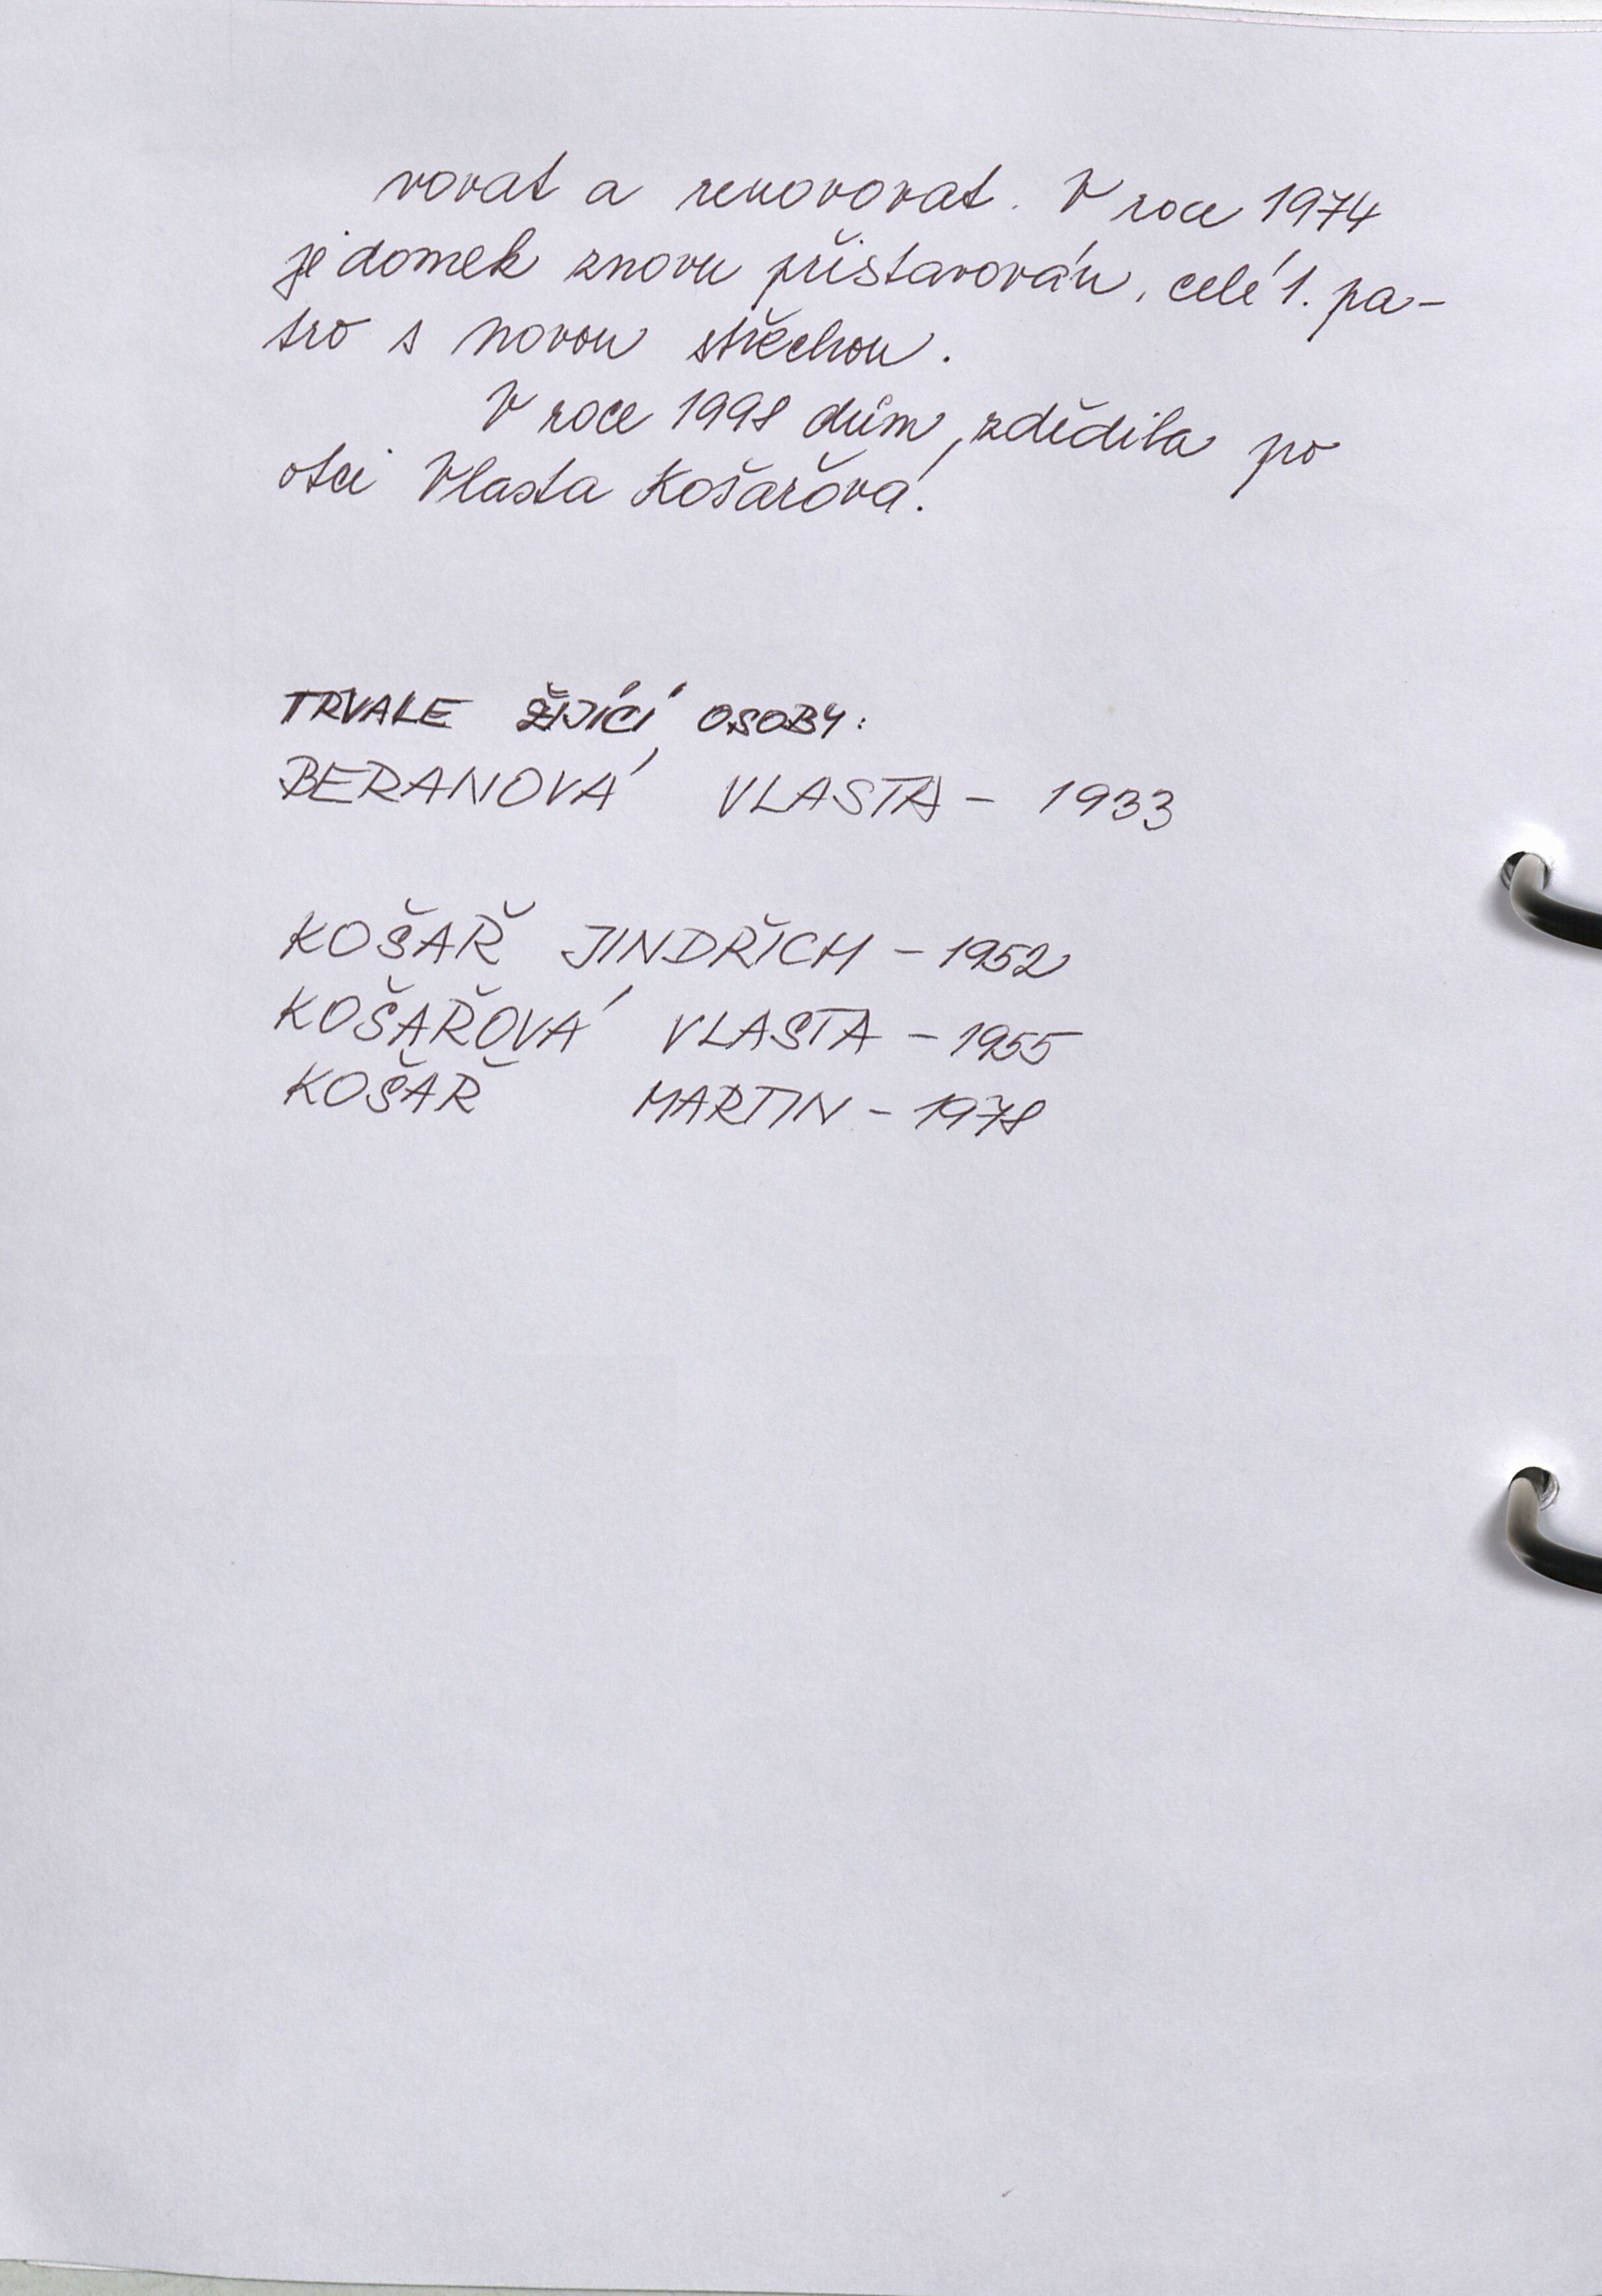 vovat a renovovat. V roce 1974
je domek znovu přistavován, celé 1. pa-
tro s novou střechou.
V roce 1998 dům zdědila po
otci Vlasta Košařová.
TRVALE ŽIJÍCÍ OSOBY:
BERANOVÁ VLASTA - 1933
KOŠAŘ JINDŘICH - 1952
KOŠAŘOVÁ VLASTA - 1955
KOŠAŘ MARTIN - 1978